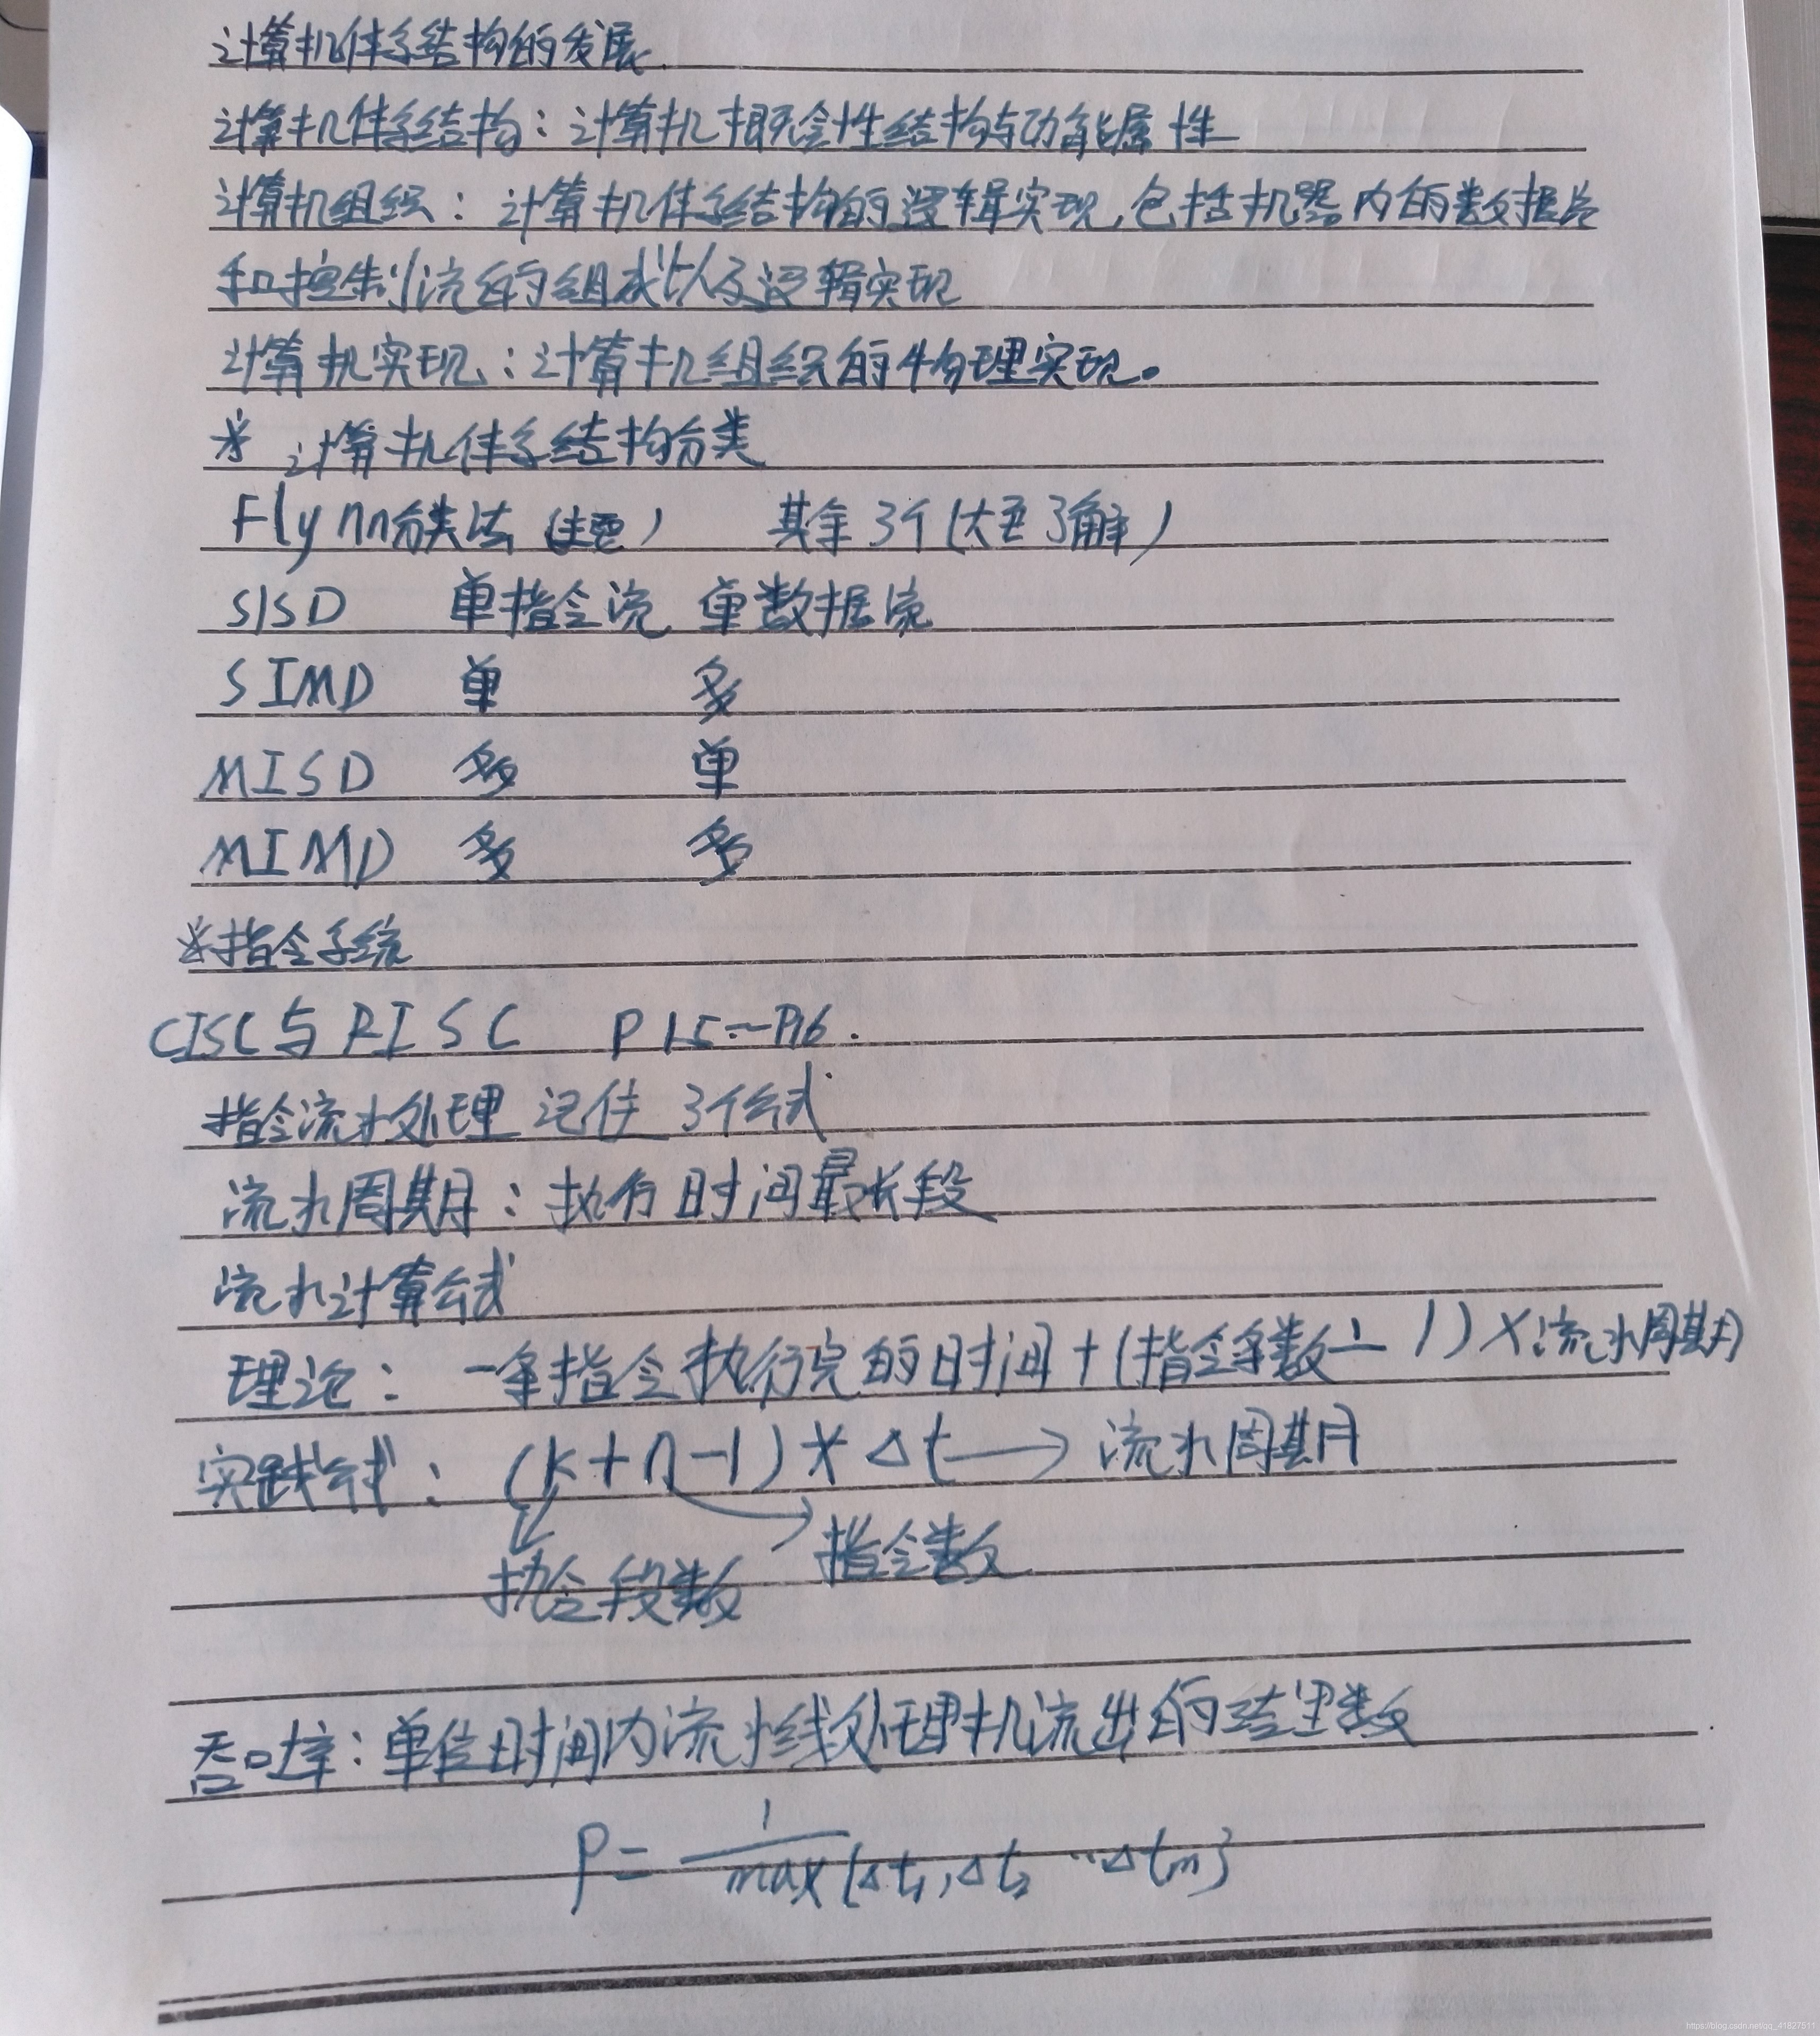 计算机体系结构的发展
计算机体系结构：计算机概念性结构与功能属性
计算机组织：计算机体系结构的逻辑实现，包括机器内的数据流
和控制流的组成以及逻辑实现
计算机实现：计算机组织的物理实现。
* 计算机体系结构分类
Flynn分类法（主要） 其余3个（大至了解）
SISD 单指令流 单数据流
SIMD 单 多
MISD 多 单
MIMD 多 多
*指令系统
CISC与RISC P15~P16.
指令流水处理 记住 3个公式
流水周期：执行时间最长段
流水计算公式
理论：一条指令执行完的时间+(指令条数-1)×流水周期
实践公式：(k+n-1)×Δt→流水周期
指令数
执令段数
吞吐率：单位时间内流水线处理机流出的结果数
P=1/max{Δt1,Δt2…Δtm}
https://blog.csdn.net/qq_41827511